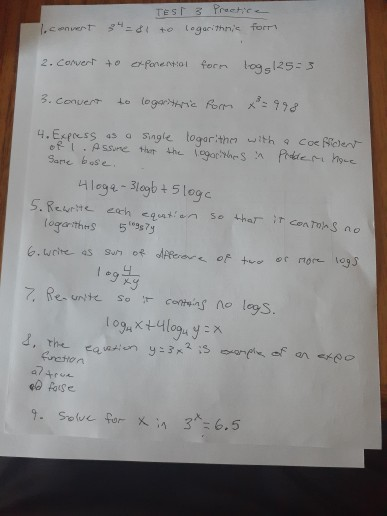 TEST 3 Practice
1. convert 3⁴=81 to logarithmic form
2. Convert to exponential form log₅125=3
3. convert to logarithmic form x³=998
4. Express as a single logarithm with a coefficient
of 1. Assume that the logarithms in Problem have
same base.
4loga-3logb+5logc
5. Rewrite each equation so that it contains no
logarithms
6. Write as sum of difference of two or more logs
log 4/xy
7. Re-write so it contains no logs.
log₄x+4log₄y=x
8. The equation y=3x² is example of an expo
function
a) true
b) false
9. Solve for x in 3ˣ=6.5